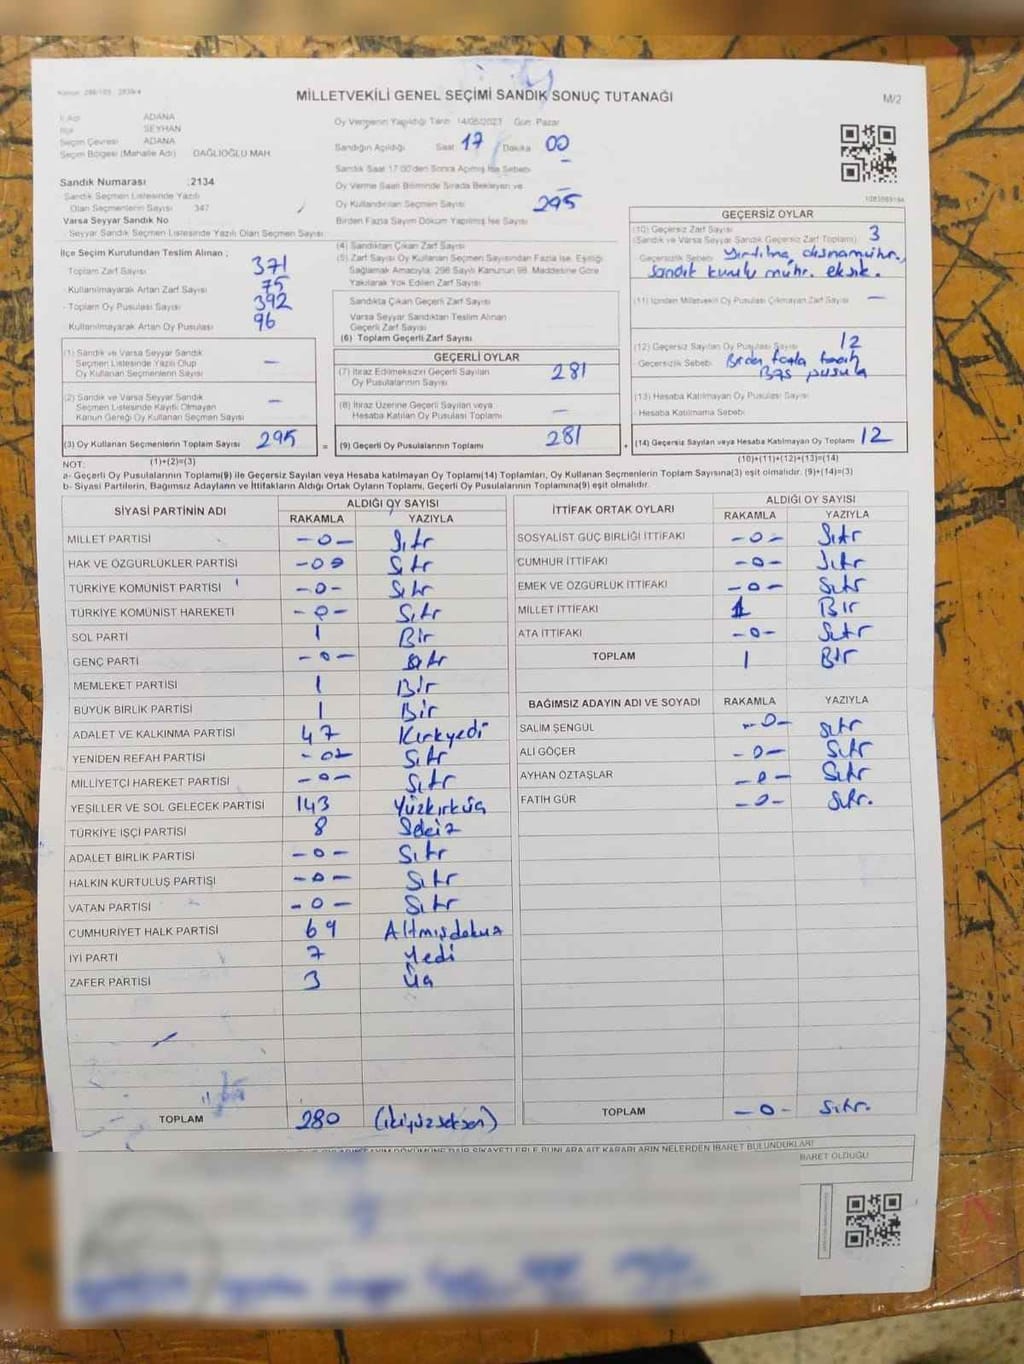 MİLLETVEKİLİ GENEL SEÇİMİ SANDIK SONUÇ TUTANAĞI
M/2
İl Adı ADANA
İlçe SEYHAN
Seçim Çevresi ADANA
Seçim Bölgesi (Mahalle Adı) DAĞLIOĞLU MAH.
Oy Vermenin Yapıldığı Tarih 14/05/2023 Gün Pazar
Sandığın Açıldığı Saat 17 Dakika 00
Sandık Saat 17:00'den Sonra Açılmış İse Sebebi
Oy Verme Saati Bitiminde Sırada Bekleyen ve
Oy Kullandırılan Seçmen Sayısı 295
Birden Fazla Sayım Döküm Yapılmış İse Sayısı
Sandık Numarası : 2134
Sandık Seçmen Listesinde Yazılı
Olan Seçmenlerin Sayısı 347
Varsa Seyyar Sandık No
Seyyar Sandık Seçmen Listesinde Yazılı Olan Seçmen Sayısı:
İlçe Seçim Kurulundan Teslim Alınan ;
Toplam Zarf Sayısı 371
Kullanılmayarak Artan Zarf Sayısı 75
Toplam Oy Pusulası Sayısı 392
Kullanılmayarak Artan Oy Pusulası 96
(1) Sandık ve Varsa Seyyar Sandık
Seçmen Listesinde Yazılı Olup
Oy Kullanan Seçmenlerin Sayısı —
(2) Sandık ve Varsa Seyyar Sandık
Seçmen Listesinde Kayıtlı Olmayan
Kanun Gereği Oy Kullanan Seçmen Sayısı —
(3) Oy Kullanan Seçmenlerin Toplam Sayısı 295
(1)+(2)=(3)
(4) Sandıktan Çıkan Zarf Sayısı
(5) Zarf Sayısı Oy Kullanan Seçmen Sayısından Fazla İse, Eşitliği
Sağlamak Amacıyla, 298 Sayılı Kanunun 98. Maddesine Göre
Yakılarak Yok Edilen Zarf Sayısı
Sandıkta Çıkan Geçerli Zarf Sayısı
Varsa Seyyar Sandıktan Teslim Alınan
Geçerli Zarf Sayısı
(6) Toplam Geçerli Zarf Sayısı
GEÇERLİ OYLAR
(7) İtiraz Edilmeksizin Geçerli Sayılan
Oy Pusulalarının Sayısı 281
(8) İtiraz Üzerine Geçerli Sayılan veya
Hesaba Katılan Oy Pusulası Toplamı —
= (9) Geçerli Oy Pusulalarının Toplamı 281
GEÇERSİZ OYLAR
(10) Geçersiz Zarf Sayısı 3
(Sandık ve Varsa Seyyar Sandık Geçersiz Zarf Toplamı)
Geçersizlik Sebebi
sandık kurulu mühr. eksik.
(11) İçinden Milletvekili Oy Pusulası Çıkmayan Zarf Sayısı —
(12) Geçersiz Sayılan Oy Pusulası Sayısı 12
Geçersizlik Sebebi Birden fazla tercih
Boş pusula
(13) Hesaba Katılmayan Oy Pusulası Sayısı
Hesaba Katılmama Sebebi
+ (14) Geçersiz Sayılan veya Hesaba Katılmayan Oy Toplamı 12
(10)+(11)+(12)+(13)=(14)
NOT:
a- Geçerli Oy Pusulalarının Toplamı(9) ile Geçersiz Sayılan veya Hesaba katılmayan Oy Toplamı(14) Toplamları, Oy Kullanan Seçmenlerin Toplam Sayısına(3) eşit olmalıdır. (9)+(14)=(3)
b- Siyasi Partilerin, Bağımsız Adayların ve İttifakların Aldığı Ortak Oyların Toplamı, Geçerli Oy Pusulalarının Toplamına(9) eşit olmalıdır.
SİYASİ PARTİNİN ADI ALDIĞI OY SAYISI
RAKAMLA YAZIYLA
MİLLET PARTİSİ -0- Sıfır
HAK VE ÖZGÜRLÜKLER PARTİSİ -0- Sıfır
TÜRKİYE KOMÜNİST PARTİSİ -0- Sıfır
TÜRKİYE KOMÜNİST HAREKETİ -0- Sıfır
SOL PARTİ 1 Bir
GENÇ PARTİ -0- Sıfır
MEMLEKET PARTİSİ 1 Bir
BÜYÜK BİRLİK PARTİSİ 1 Bir
ADALET VE KALKINMA PARTİSİ 47 Kırkyedi
YENİDEN REFAH PARTİSİ -0- Sıfır
MİLLİYETÇİ HAREKET PARTİSİ -0- Sıfır
YEŞİLLER VE SOL GELECEK PARTİSİ 143 Yüzkırküç
TÜRKİYE İŞÇİ PARTİSİ 8 Sekiz
ADALET BİRLİK PARTİSİ -0- Sıfır
HALKIN KURTULUŞ PARTİSİ -0- Sıfır
VATAN PARTİSİ -0- Sıfır
CUMHURİYET HALK PARTİSİ 69 Altmışdokuz
İYİ PARTİ 7 Yedi
ZAFER PARTİSİ 3 Üç
TOPLAM 280 (ikiyüzseksen)
İTTİFAK ORTAK OYLARI ALDIĞI OY SAYISI
RAKAMLA YAZIYLA
SOSYALİST GÜÇ BİRLİĞİ İTTİFAKI -0- Sıfır
CUMHUR İTTİFAKI -0- Sıfır
EMEK VE ÖZGÜRLÜK İTTİFAKI -0- Sıfır
MİLLET İTTİFAKI 1 Bir
ATA İTTİFAKI -0- Sıfır
TOPLAM 1 Bir
BAĞIMSIZ ADAYIN ADI VE SOYADI RAKAMLA YAZIYLA
SALİM ŞENGÜL -0- Sıfır
ALİ GÖÇER -0- Sıfır
AYHAN ÖZTAŞLAR -0- Sıfır
FATİH GÜR -0- Sıfır.
TOPLAM -0- Sıfır.
DÖKÜMÜNE DAİR ŞİKAYETLERLE BUNLARA AİT KARARLARIN NELERDEN İBARET BULUNDUKLARI
İBARET OLDUĞU